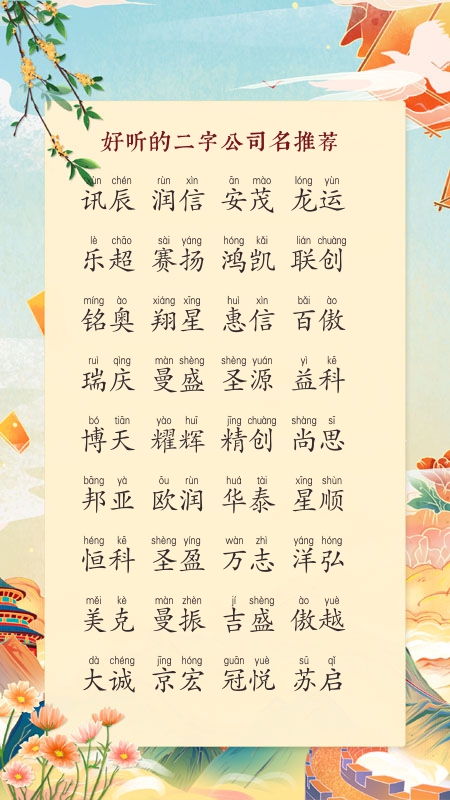 好听的二字公司名推荐
xùn chén rùn xìn ān mào lóng yùn
讯辰 润信 安茂 龙运
lè chāo sài yáng hóng kǎi lián chuàng
乐超 赛扬 鸿凯 联创
míng ào xiáng xīng huì xìn bǎi ào
铭奥 翔星 惠信 百傲
ruì qìng màn shèng shèng yuán yì kē
瑞庆 曼盛 圣源 益科
bó tiān yào huī jīng chuàng shàng sī
博天 耀辉 精创 尚思
bāng yà ōu rùn huá tài xīng shùn
邦亚 欧润 华泰 星顺
héng kē shèng yíng wàn zhì yáng hóng
恒科 圣盈 万志 洋弘
měi kè màn zhèn jí shèng ào yuè
美克 曼振 吉盛 傲越
dà chéng jīng hóng guān yuè sū qǐ
大诚 京宏 冠悦 苏启